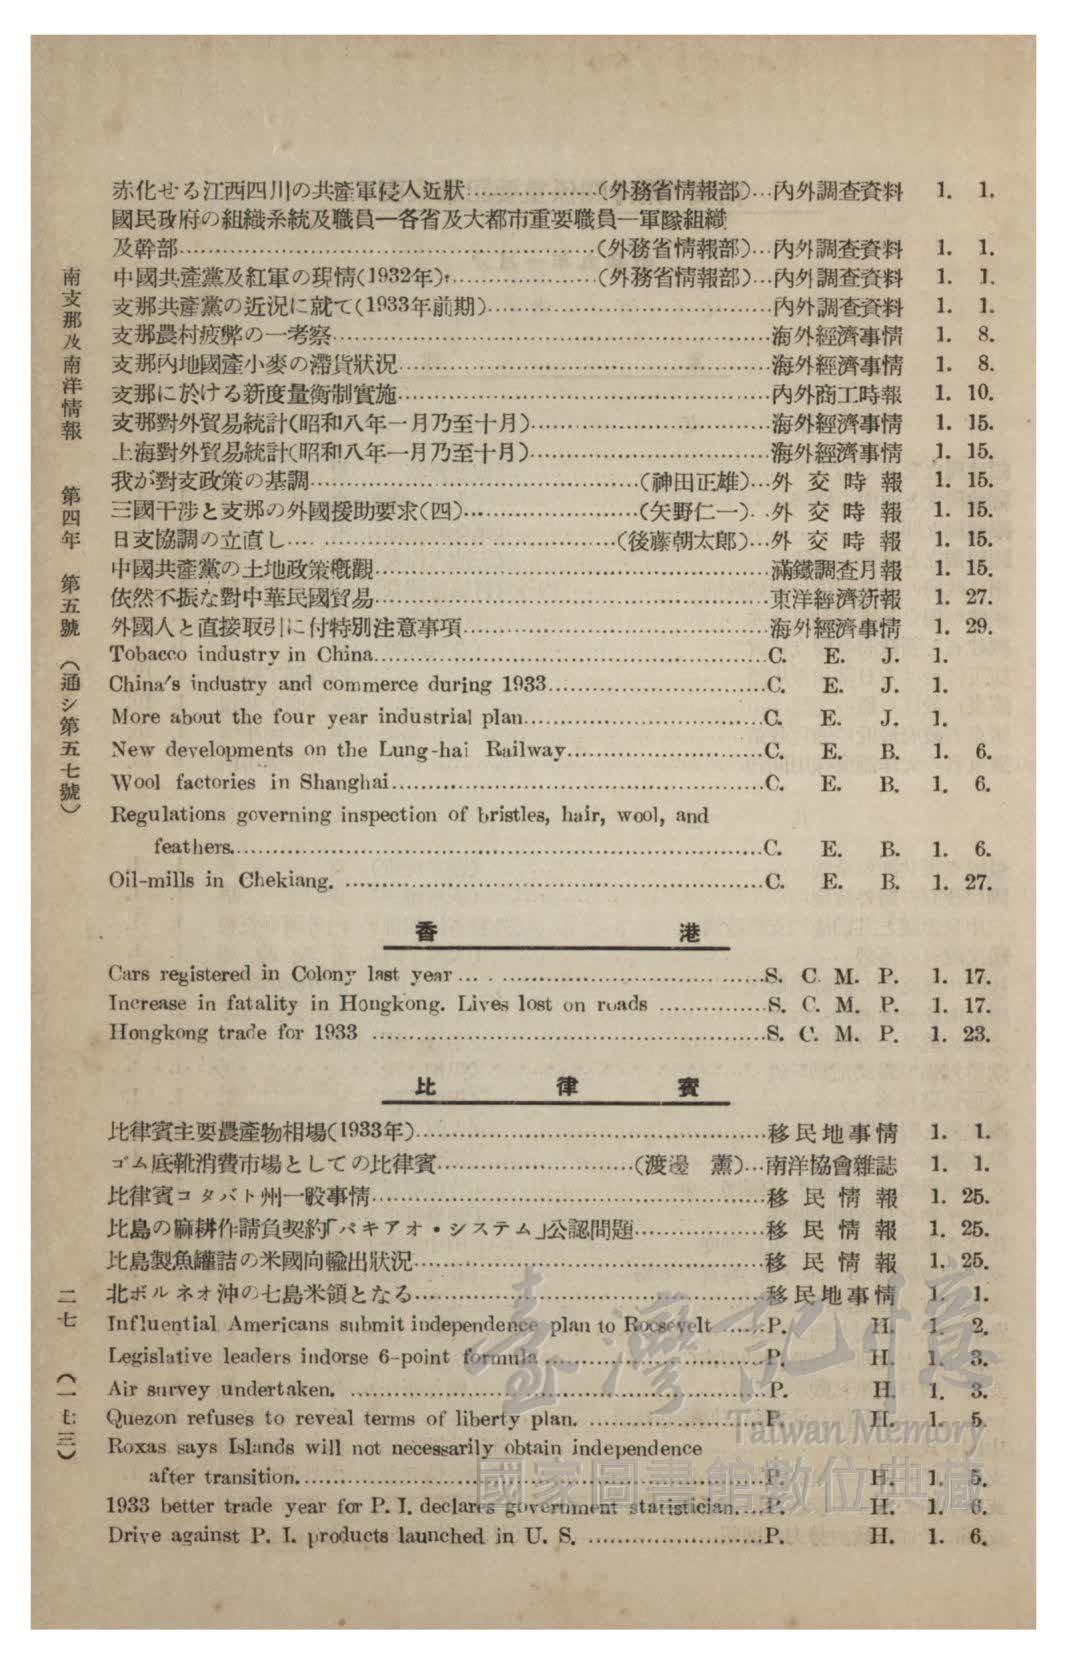 赤化せる江西四川の共產軍侵入近狀………………(外務省情報部)…內外調查資料 1. 1.
國民政府の組織系統及職員―各省及大都市重要職員―軍隊組織
及幹部………………(外務省情報部)…內外調查資料 1. 1.
中國共產黨及紅軍の現情(1932年)………………(外務省情報部)…內外調查資料 1. 1.
支那共產黨の近況に就て(1933年前期)………………內外調查資料 1. 1.
支那農村疲弊の一考察………………海外經濟事情 1. 8.
支那內地國產小麥の滯貨狀況………………海外經濟事情 1. 8.
支那に於ける新度量衡制實施………………內外商工時報 1. 10.
支那對外貿易統計(昭和八年一月乃至十月)………………海外經濟事情 1. 15.
上海對外貿易統計(昭和八年一月乃至十月)………………海外經濟事情 1. 15.
我が對支政策の基調………………(神田正雄)…外交時報 1. 15.
三國干涉と支那の外國援助要求(四)………………(矢野仁一)…外交時報 1. 15.
日支協調の立直し………………(後藤朝太郎)…外交時報 1. 15.
中國共產黨の土地政策槪觀………………滿鐵調查月報 1. 15.
依然不振な對中華民國貿易………………東洋經濟新報 1. 27.
外國人と直接取引に付特別注意事項………………海外經濟事情 1. 29.
Tobacco industry in China………………C. E. J. 1.
China's industry and commerce during 1933………………C. E. J. 1.
More about the four year industrial plan………………C. E. J. 1.
New developments on the Lung-hai Railway………………C. E. B. 1. 6.
Wool factories in Shanghai………………C. E. B. 1. 6.
Regulations governing inspection of bristles, hair, wool, and
feathers………………C. E. B. 1. 6.
Oil-mills in Chekiang. ………………C. E. B. 1. 27.
香港
Cars registered in Colony last year………………S. C. M. P. 1. 17.
Increase in fatality in Hongkong. Lives lost on roads ………………S. C. M. P. 1. 17.
Hongkong trade for 1933 ………………S. C. M. P. 1. 23.
比律賓
比律賓主要農產物相場(1933年)………………移民地事情 1. 1.
ゴム底靴消費市場としての比律賓………………(渡邊 薰)…南洋協會雜誌 1. 1.
比律賓コタバト州一般事情………………移民情報 1. 25.
比島の麻耕作請負契約「パキアオ・システム」公認問題………………移民情報 1. 25.
比島製魚罐詰の米國向輸出狀況………………移民情報 1. 25.
北ボルネオ沖の七島米領となる………………移民地事情 1. 1.
Influential Americans submit independence plan to Roosevelt ……P. H. 1. 2.
Legislative leaders indorse 6-point formula………………P. H. 1. 3.
Air survey undertaken. ………………P. H. 1. 3.
Quezon refuses to reveal terms of liberty plan. ………………P. H. 1. 5.
Roxas says Islands will not necessarily obtain independence
after transition………………P. H. 1. 5.
1933 better trade year for P. I. declares government statistician.…P. H. 1. 6.
Drive against P. I. products launched in U. S. ………………P. H. 1. 6.
南支那及南洋情報 第四年 第五號 (通シ第五七號)
二七 (一七三)
臺灣記憶
Taiwan Memory
國家圖書館數位典藏